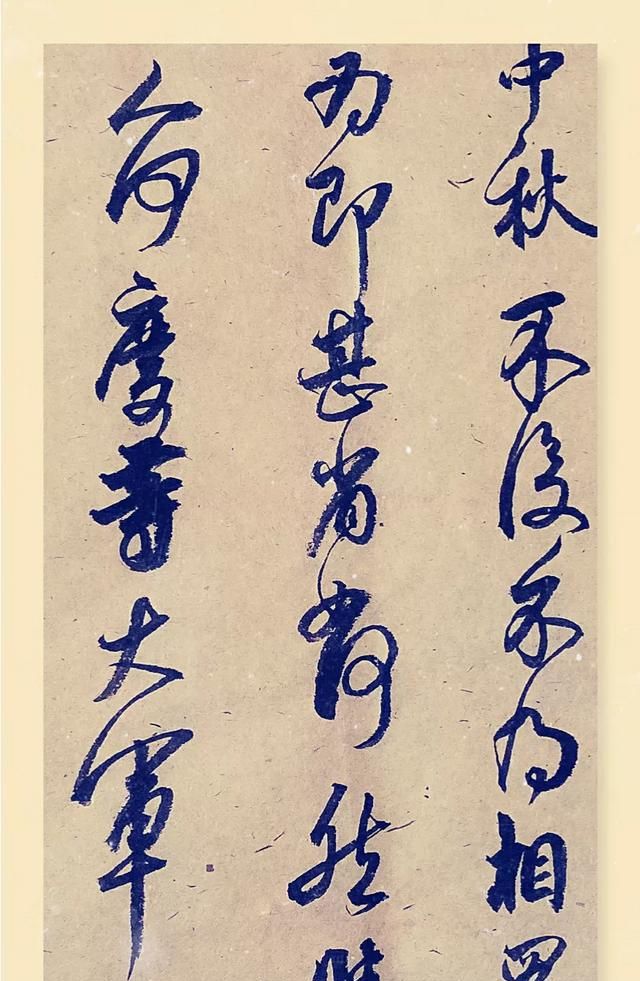 中秋不復不得相
為即甚省如何然
人何慶等大軍